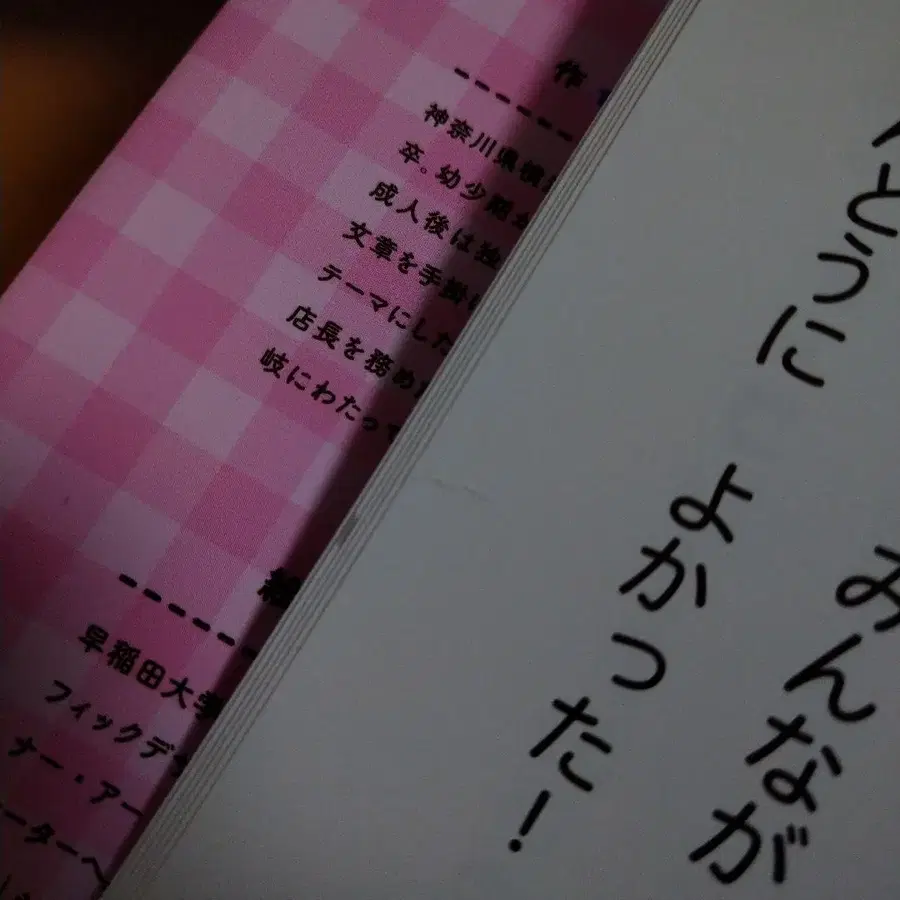 作
神奈川県横
卒。幼少期
成人後は独
文章を手掛け
テーマにした
店長を務め
岐にわたって
絵
早稲田大学
フィックデ
ナー・アー
ーターへ
みんなが
んとうに よかった!